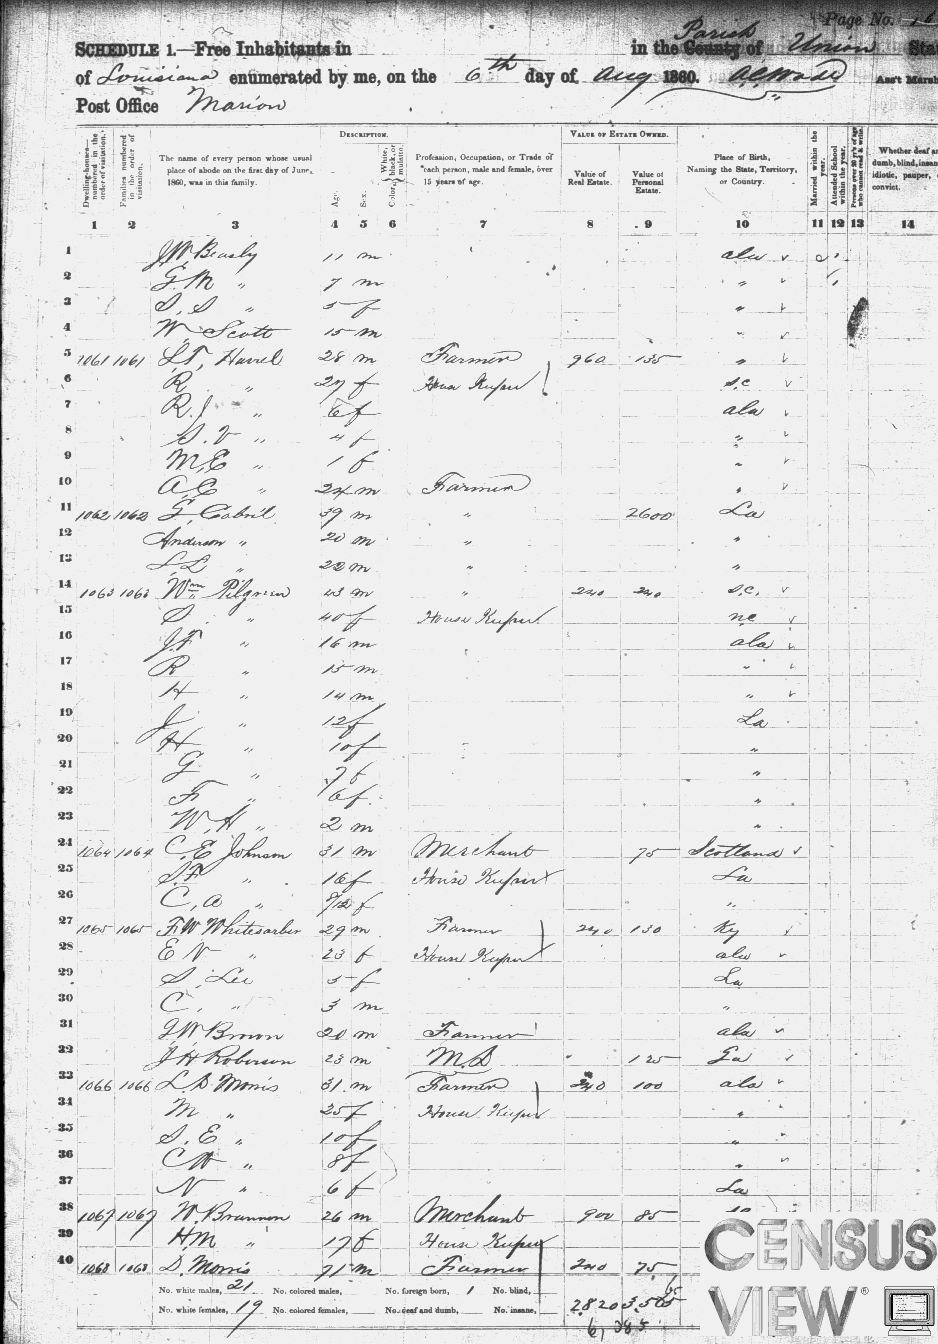 Page No.
SCHEDULE 1.—Free Inhabitants in in the County of Parish Union Sta
of Louisiana enumerated by me, on the 6th day of Aug 1860. Ass't Marsh
Post Office Marion
DESCRIPTION. VALUE OF ESTATE OWNED.
Dwelling-houses— numbered in the order of visitation. Families numbered in the order of visitation. The name of every person whose usual place of abode on the first day of June, 1860, was in this family. Age. Sex. Color, White, black, or mulatto. Profession, Occupation, or Trade of each person, male and female, over 15 years of age. Value of Real Estate. Value of Personal Estate. Place of Birth, Naming the State, Territory, or Country. Married within the year. Attended School within the year. Persons over 20 y'rs of age who cannot read & write. Whether deaf a dumb, blind, insan idiotic, pauper, convict.
1 2 3 4 5 6 7 8 9 10 11 12 13 14
1 J.W. Beasly 11 m ala
2 G.M " 7 m "
3 S.S " 5 f "
4 W. Scott 15 m "
5 1061 1061 S.T. Harrel 28 m Farmer 960 135 "
6 R " 27 f House Keeper S.C
7 R.J " 6 f ala
8 S.V " 4 f "
9 M.E " 1 f "
10 A.C " 24 m Farmer "
11 1062 1062 G. Cabril 39 m " 2600 La
12 Anderson " 20 m " "
13 S.L " 22 m " "
14 1063 1063 Wm Pilgreen 43 m " 240 240 S.C.
15 S. " 40 f House Keeper nc
16 J.F " 16 m ala
17 R " 15 m "
18 H " 14 m "
19 J " 12 f La
20 H " 10 f "
21 G " 7 f "
22 F " 6 f "
23 W.H " 2 m "
24 1064 1064 C.E Johnson 31 m Merchant 75 Scotland
25 S.F " 16 f House Keeper La
26 C.A " 9/12 f "
27 1065 1065 F.W Whitesarber 29 m Farmer 240 130 Ky
28 E V " 23 f House Keeper ala
29 S. Lee " 5 f La
30 C. " 3 m "
31 J.W Brown 20 m Farmer ala
32 J.H Roberson 23 m M.D 125 Ga
33 1066 1066 L D Morris 31 m Farmer 240 100 ala
34 M " 25 f House Keeper "
35 S.E " 10 f "
36 C W " 8 f "
37 N " 6 f La
38 1067 1067 W. Brannon 26 m Merchant 900 85
39 H.M " 17 f House Keeper
40 1068 1068 D. Morris 71 m Farmer 240 75
No. white males, 21 No. colored males, No. foreign born, 1 No. blind,
No. white females, 19 No. colored females, No. deaf and dumb, No. insane, 2820
CENSUS
VIEW®